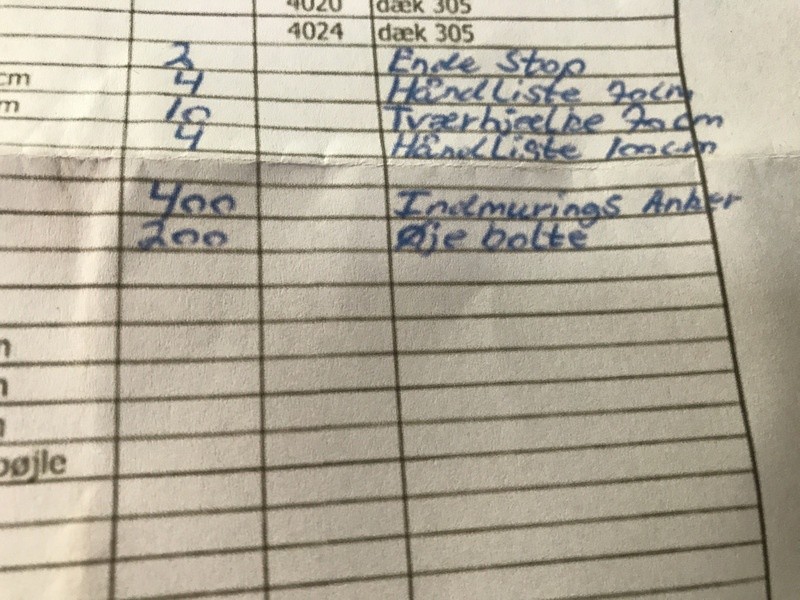 4020 dæk 305
4024 dæk 305
2 Ende Stop
cm 4 Håndliste 70cm
m 10 Tværhjælbe 70cm
4 Håndliste 100cm
400 Indmurings Anker
200 Øje bolte
n
n
n
bøjle